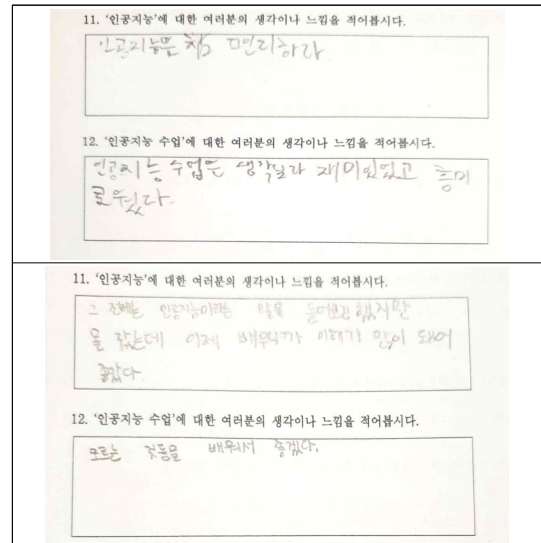 11. '인공지능'에 대한 여러분의 생각이나 느낌을 적어봅시다.
인공지능은 참 편리하다
12. '인공지능 수업'에 대한 여러분의 생각이나 느낌을 적어봅시다.
인공지능 수업은 생각보다 재미있었고 흥미
로웠다.
11. '인공지능'에 대한 여러분의 생각이나 느낌을 적어봅시다.
그 전에는 인공지능이라는 말을 들어보긴 했지만
몰랐는데 이제 배우니까 이해가 많이 돼어
좋았다.
12. '인공지능 수업'에 대한 여러분의 생각이나 느낌을 적어봅시다.
모르는 것들을 배워서 좋겠다.